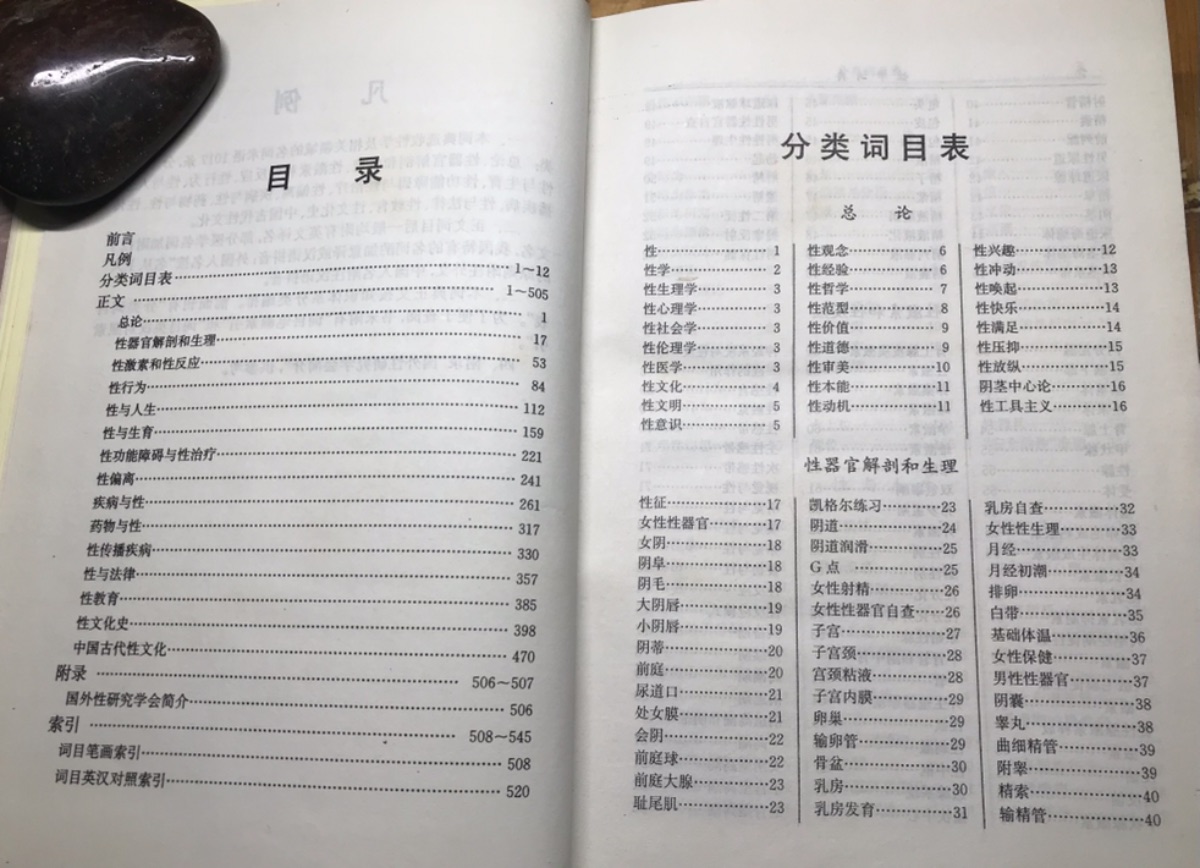 目 录
前言
凡例
分类词目表 1～12
正文 1～505
总论 1
性器官解剖和生理 17
性激素和性反应 53
性行为 84
性与人生 112
性与生育 159
性功能障碍与性治疗 221
性偏离 241
疾病与性 261
药物与性 317
性传播疾病 330
性与法律 357
性教育 385
性文化史 398
中国古代性文化 470
附录 506～507
国外性研究学会简介 506
索引 508～545
词目笔画索引 508
词目英汉对照索引 520
分类词目表
总 论
性 1
性学 2
性生理学 3
性心理学 3
性社会学 3
性伦理学 3
性医学 3
性文化 4
性文明 5
性意识 5
性观念 6
性经验 6
性哲学 7
性范型 8
性价值 9
性道德 9
性审美 10
性本能 11
性动机 11
性兴趣 12
性冲动 13
性唤起 13
性快乐 14
性满足 14
性压抑 15
性放纵 15
阴茎中心论 16
性工具主义 16
性器官解剖和生理
性征 17
女性性器官 17
女阴 18
阴阜 18
阴毛 18
大阴唇 19
小阴唇 19
阴蒂 20
前庭 20
尿道口 21
处女膜 21
会阴 22
前庭球 22
前庭大腺 23
耻尾肌 23
凯格尔练习 23
阴道 24
阴道润滑 25
G 点 25
女性射精 26
女性性器官自查 26
子宫 27
子宫颈 28
宫颈粘液 28
子宫内膜 29
卵巢 29
输卵管 29
骨盆 30
乳房 30
乳房发育 31
乳房自查 32
女性性生理 33
月经 33
月经初潮 34
排卵 34
白带 35
基础体温 36
女性保健 37
男性性器官 37
阴囊 38
睾丸 38
曲细精管 39
附睾 39
精索 40
输精管 40